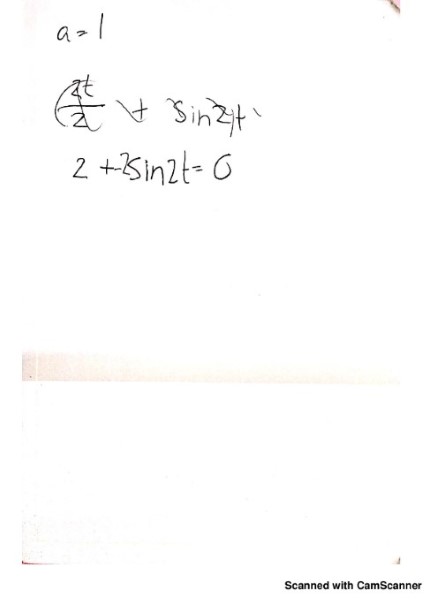 a=1
2 + 2sin2t = 0
Scanned with CamScanner